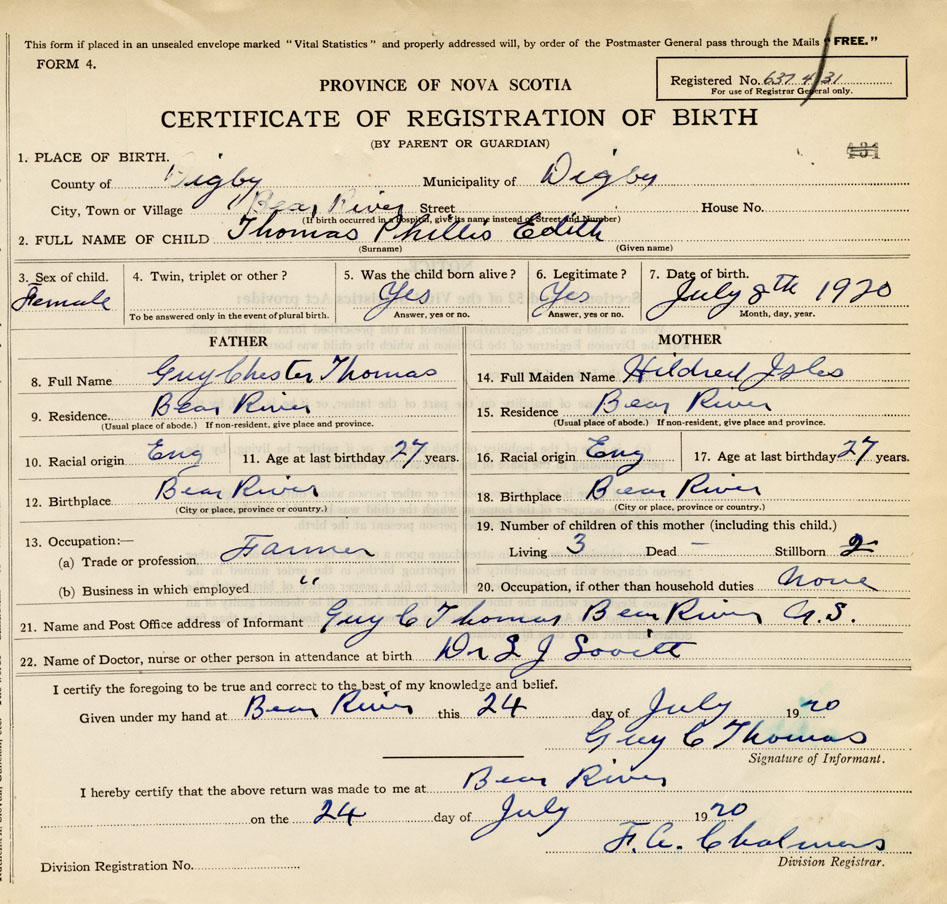 This form if placed in an unsealed envelope marked "Vital Statistics" and properly addressed will, by order of the Postmaster General pass through the Mails "FREE."
FORM 4.
PROVINCE OF NOVA SCOTIA
Registered No. 637 4 31
For use of Registrar General only.
CERTIFICATE OF REGISTRATION OF BIRTH
(BY PARENT OR GUARDIAN)
1. PLACE OF BIRTH.
County of Digby Municipality of Digby
City, Town or Village Bear River Street House No.
(If birth occurred in a hospital, give its name instead of Street and Number)
2. FULL NAME OF CHILD Thomas Phillis Edith
(Surname) (Given name)
3. Sex of child. 4. Twin, triplet or other? 5. Was the child born alive? 6. Legitimate? 7. Date of birth.
Female Yes Yes July 8th 1920
To be answered only in the event of plural birth. Answer, yes or no. Answer, yes or no. Month, day, year.
FATHER MOTHER
8. Full Name Guy Chester Thomas 14. Full Maiden Name Hildred Isles
9. Residence Bear River 15. Residence Bear River
(Usual place of abode.) If non-resident, give place and province. (Usual place of abode.) If non-resident, give place and province.
10. Racial origin Eng 11. Age at last birthday 27 years. 16. Racial origin Eng 17. Age at last birthday 27 years.
12. Birthplace Bear River 18. Birthplace Bear River
(City or place, province or country.) (City or place, province or country.)
13. Occupation:— 19. Number of children of this mother (including this child.)
(a) Trade or profession Farmer Living 3 Dead – Stillborn 2
(b) Business in which employed " 20. Occupation, if other than household duties None
21. Name and Post Office address of Informant Guy C Thomas Bear River N.S.
22. Name of Doctor, nurse or other person in attendance at birth Dr L J Lovitt
I certify the foregoing to be true and correct to the best of my knowledge and belief.
Given under my hand at Bear River this 24 day of July 1920
Guy C Thomas
Signature of Informant.
I hereby certify that the above return was made to me at Bear River
on the 24 day of July 1920
F.A. Chalmers
Division Registration No. Division Registrar.